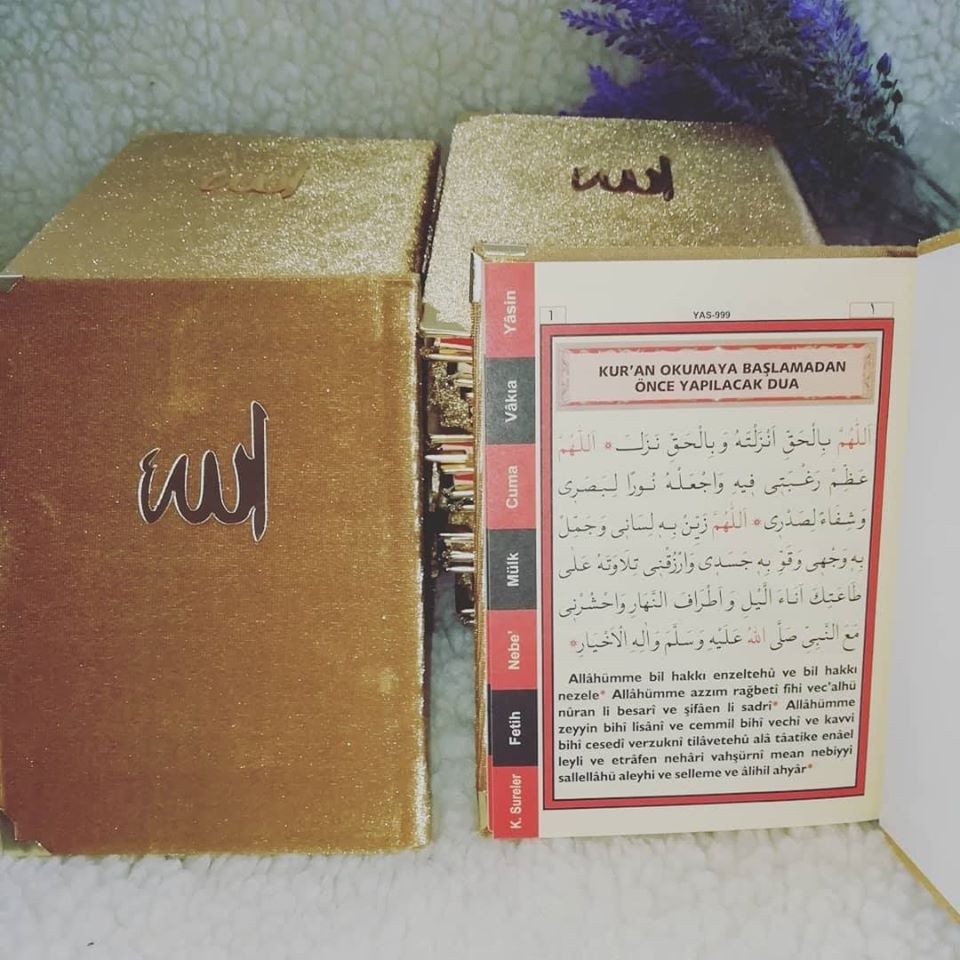 الله
الله
الله
Yâsin
Vâkıa
Cuma
Mülk
Nebe'
Fetih
K. Sureler
1
YAS-999
١
KUR'AN OKUMAYA BAŞLAMADAN
ÖNCE YAPILACAK DUA
اَللّٰهُمَّ بِالْحَقِّ اَنْزَلْتَهُ وَبِالْحَقِّ نَزَلَ * اَللّٰهُمَّ
عَظِّمْ رَغْبَتِى فِيهِ وَاجْعَلْهُ نُورًا لِبَصَرِى
وَشِفَاءً لِصَدْرِى * اَللّٰهُمَّ زَيِّنْ بِهِ لِسَانِى وَجَمِّلْ
بِهِ وَجْهِى وَقَوِّ بِهِ جَسَدِى وَارْزُقْنِى تِلَاوَتَهُ عَلٰى
طَاعَتِكَ اٰنَاءَ الَّيْلِ وَاَطْرَافَ النَّهَارِ وَاحْشُرْنِى
مَعَ النَّبِىِّ صَلَّى اللهُ عَلَيْهِ وَسَلَّمَ وَاٰلِهِ الْاَخْيَارِ *
Allâhümme bil hakkı enzeltehû ve bil hakkı
nezele* Allâhümme azzım rağbetî fîhi vec'alhü
nûran li besarî ve şifâen li sadrî* Allâhümme
zeyyin bihî lisânî ve cemmil bihî vechî ve kavvi
bihî cesedî verzuknî tilâvetehû alâ tâatike enâel
leyli ve etrâfen nehâri vahşürnî mean nebiyyi
sallellâhü aleyhi ve selleme ve âlihil ahyâr*